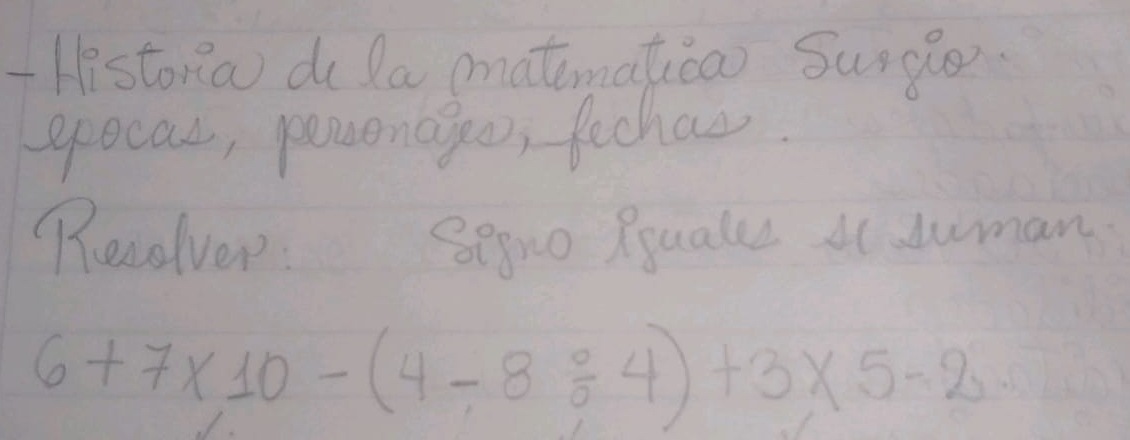 - Historia de la matematica Surgio.
epocas, personajes, fechas.
Resolver: Signo iguales se suman.
6 + 7 x 10 - (4 - 8 ÷ 4) + 3 x 5 - 2.